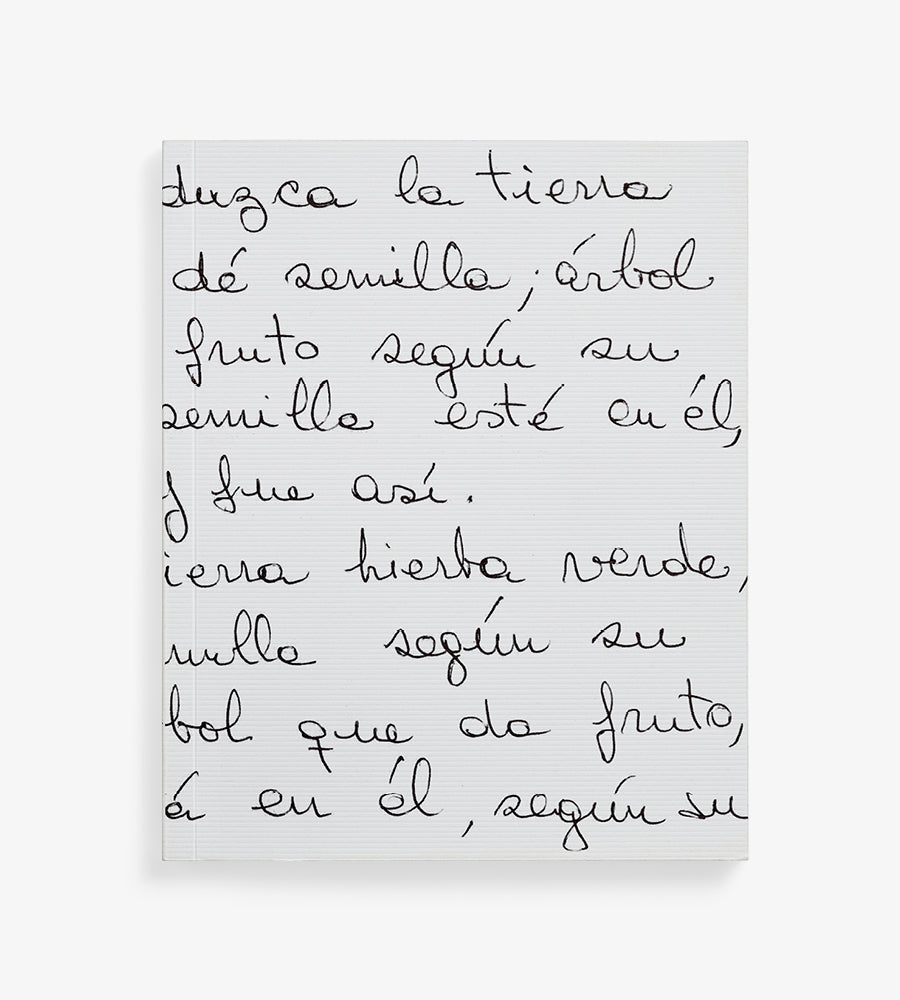 duzca la tierra
dé semilla; árbol
fruto según su
semilla esté en él,
y fue así.
ierra hierba verde,
milla según su
bol que da fruto,
á en él, según su